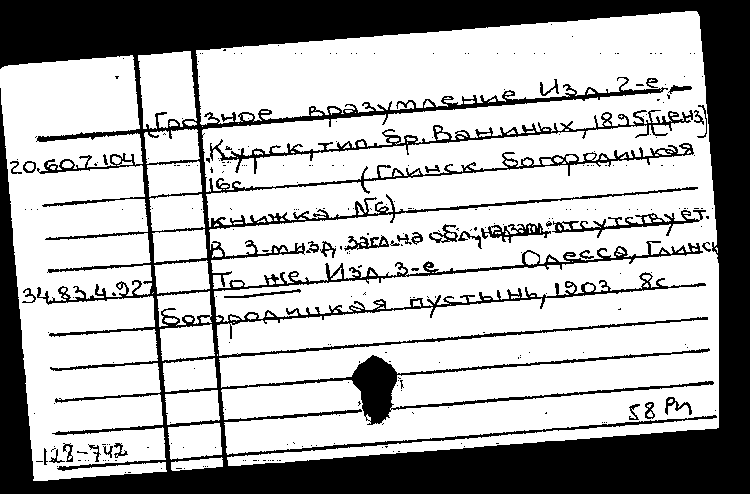 Грозное вразумление. Изд. 2-е.
Курск, тип. бр. Ваниных, 1895 [ценз]
20.60.7.104
16с. (Глинск. Богородицкая
книжка №6).
В 3-м изд. загл. на обл.; надзаг. отсутствует.
То же. Изд. 3-е. Одесса, Глинск
34.83.4.927
Богородицкая пустынь, 1903. 8с.
58 Рп
128-742